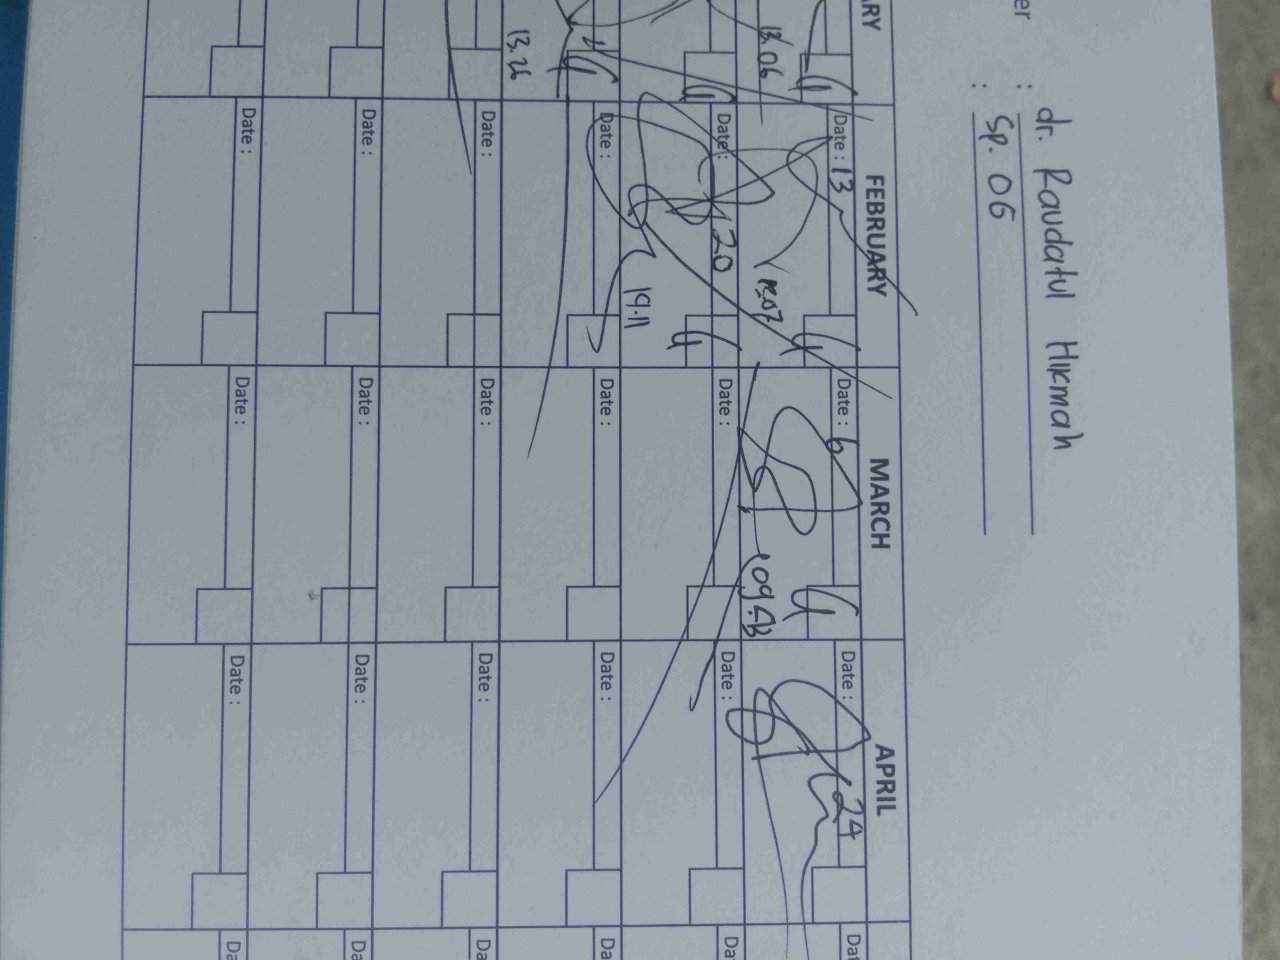 er : dr. Raudatul Hikmah
: Sp. OG
RY FEBRUARY MARCH APRIL
Date : 13 Date : 6 Date : 24 Dat
13.06 13.07
Date : 20 Date : Date : Da
19.11
Date : Date : Date : Da
13.26
Date : Date : Date : Da
Date : Date : Date : Da
Date : Date : Date : Da